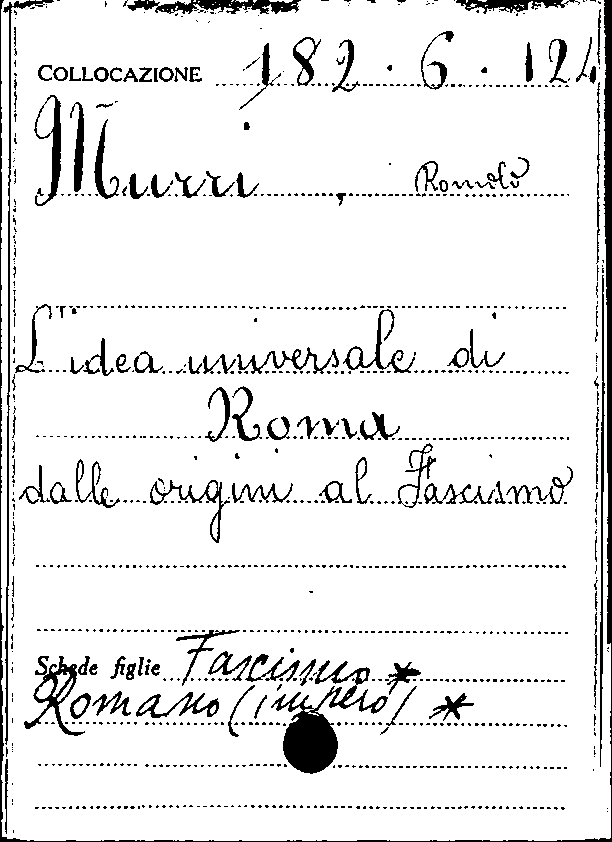 COLLOCAZIONE 182.6.124
Murri, Romolo
L'idea universale di
Roma
dalle origini al Fascismo
Schede figlie Fascismo *
Romano (impero) *